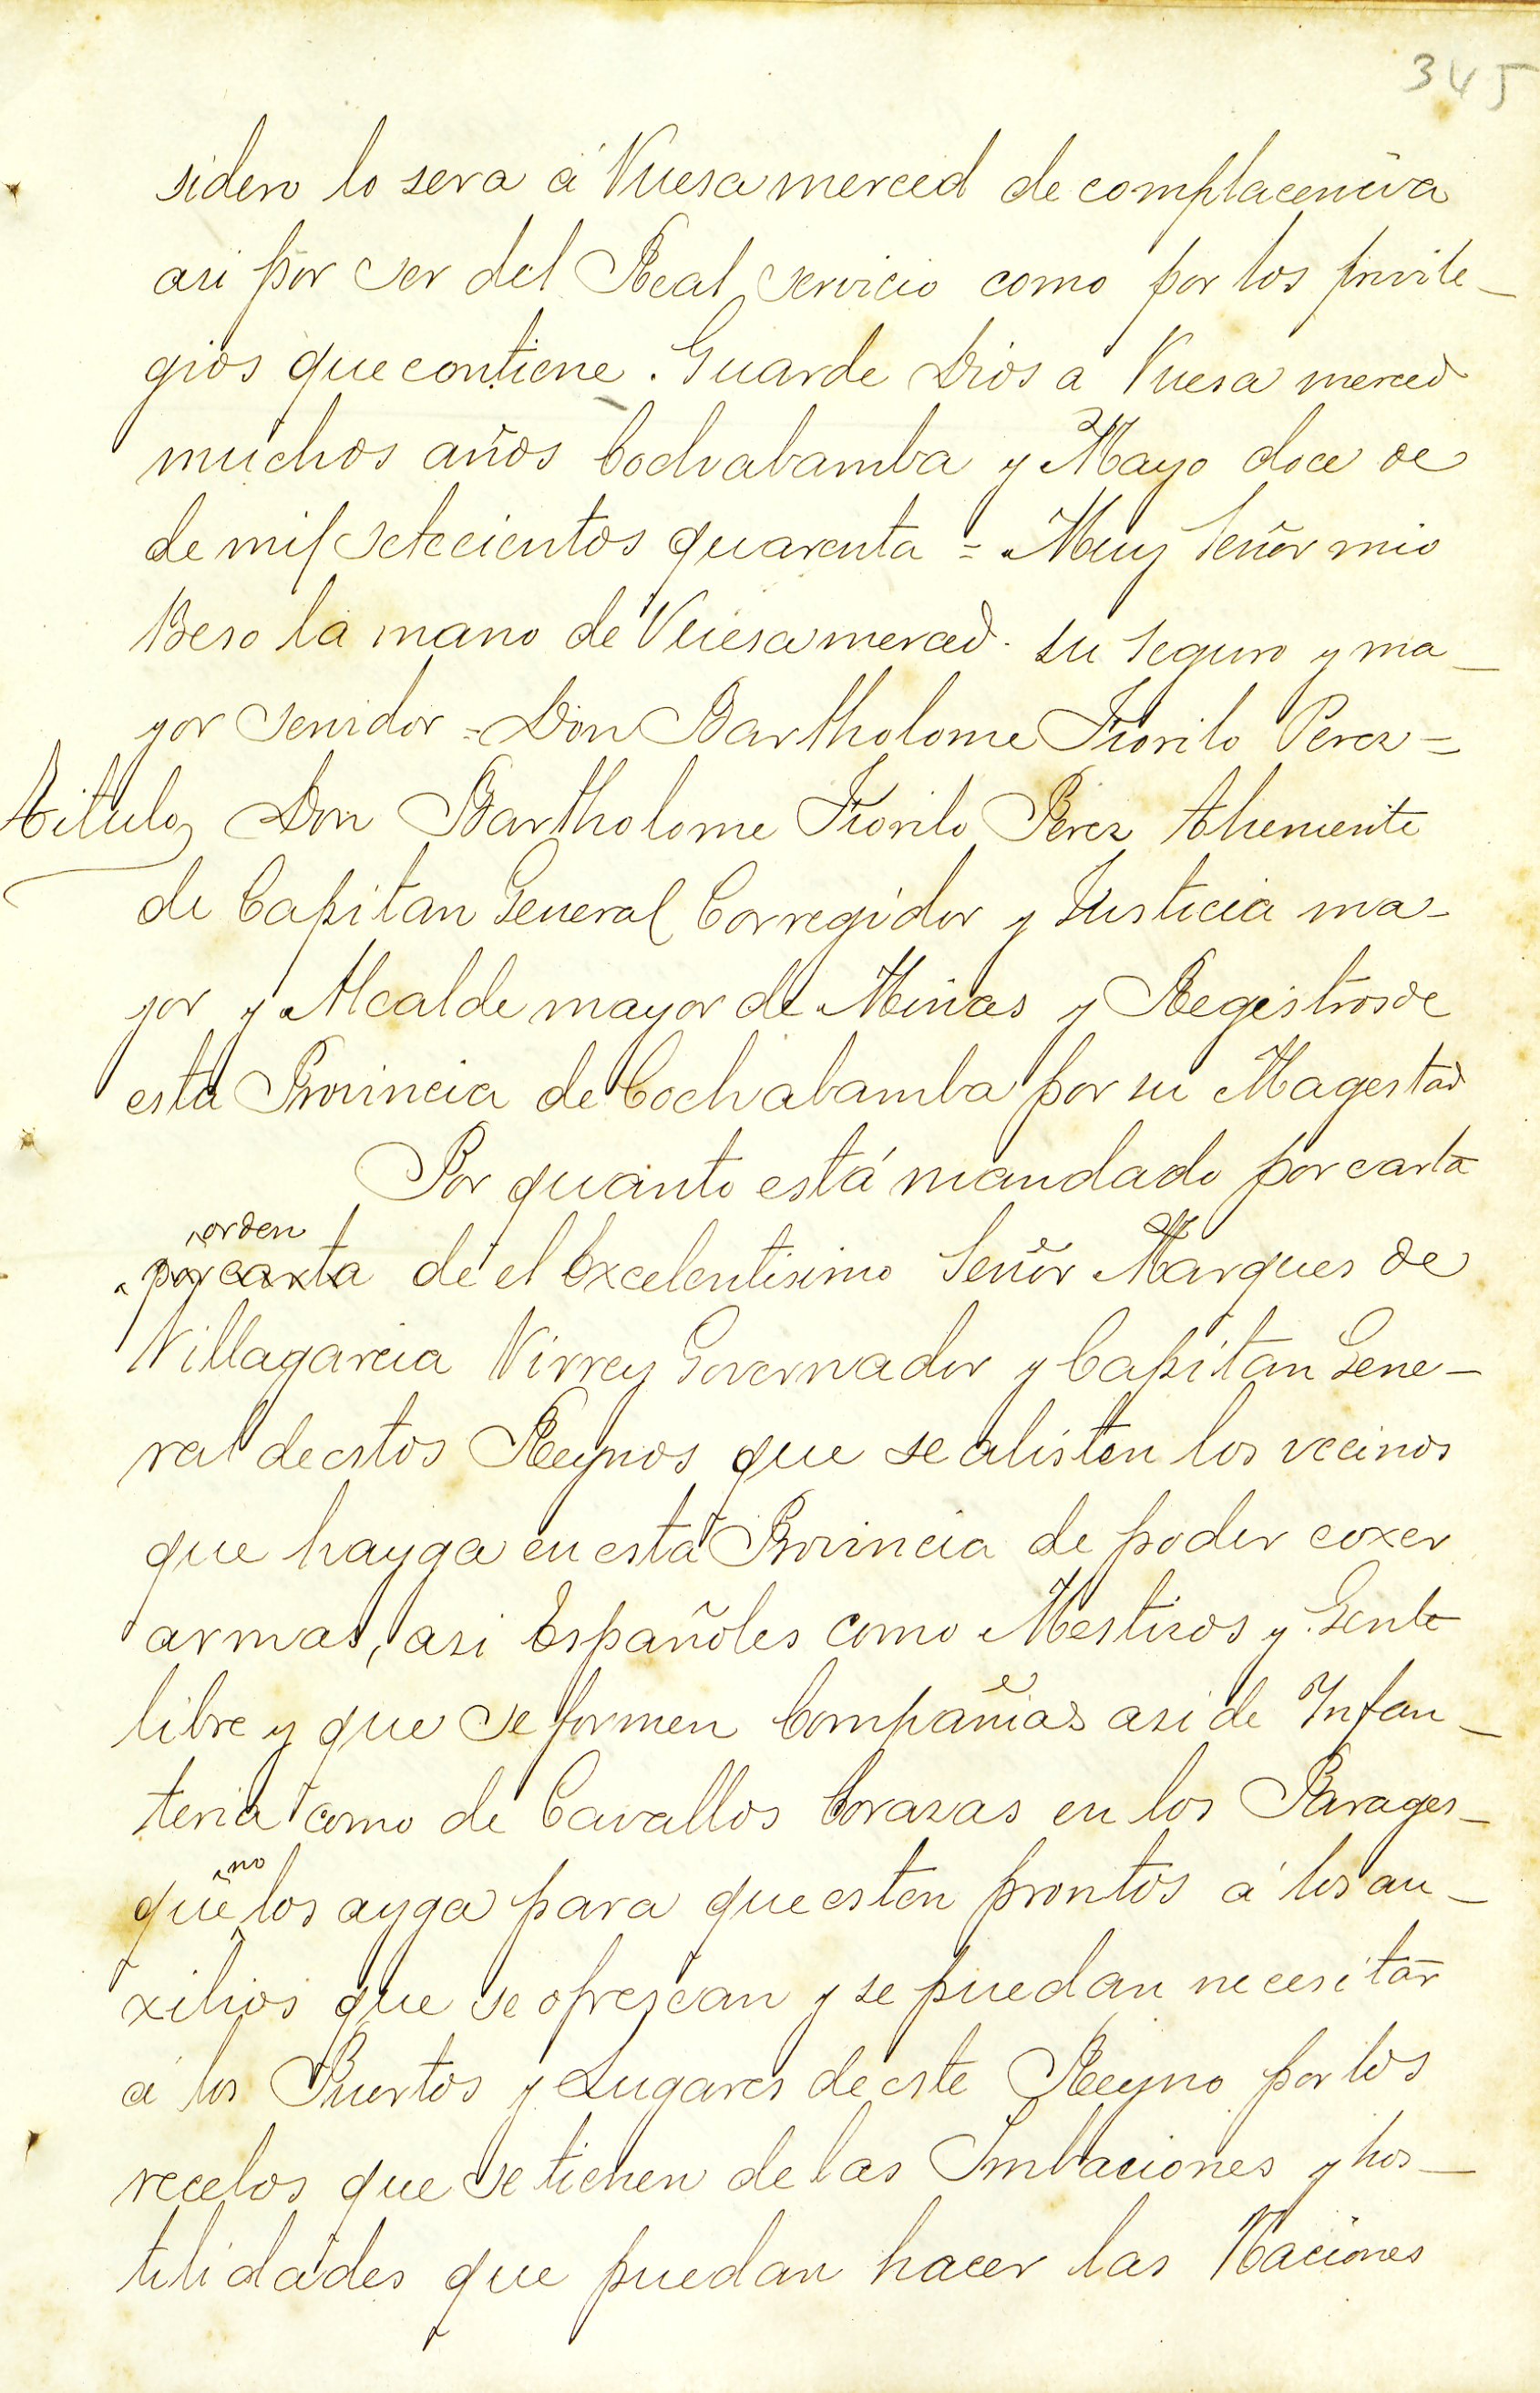 345
siden lo sera á Vuesa merced de complacencia
asi por ser del Real servicio como por los privile_
gios que contiene. Guarde Dios a Vuesa merced
muchos años Cochabamba y Mayo doce de
de mil setecientos quarenta = Muy Señor mio
Beso la mano de Vuesa merced. su seguro y ma_
yor servidor = Don Bartholome Fiorilo Perez =
titulo Don Bartholome Fiorilo Perez theniente
de Capitan General Corregidor y Justicia ma_
yor y Alcalde mayor de Minas y Registros de
esta Provincia de Cochabamba por su Magestad
Por quanto está mandado por carta
orden
por carta de el Excelentisimo Señor Marques de
Villagarcia Virrey Governador y Capitan Gene_
ral de estos Reynos que se alisten los vecinos
que hayga en esta Provincia de poder coxer
armas, asi Españoles como Mestisos y Gente
libre y que se formen Compañias asi de Infan_
teria como de Cavallos Corazas en los Parages_
no
que los ayga para que esten prontos á los au_
xilios que se ofrescan y se puedan necesitar
á los Puertos y Lugares de este Reyno por los
recelos que se tienen de las Imbaciones y hos_
tilidades que puedan hacer las Naciones